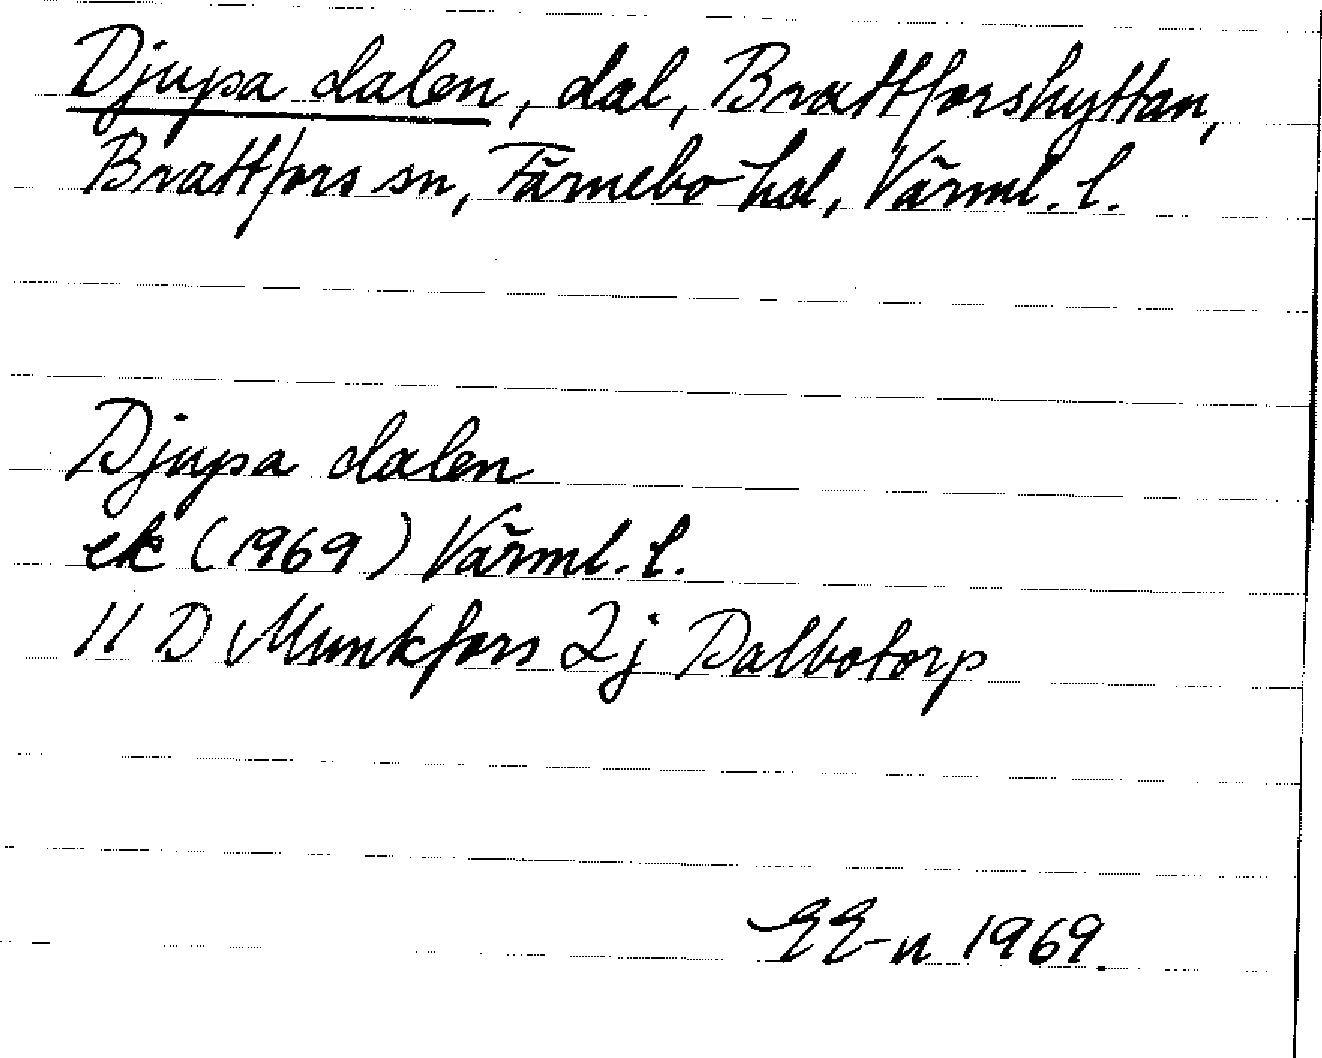 Djupa dalen, dal, Brattforshyttan,
Brattfors sn, Färnebo hd, Värml. l.
Djupa dalen
ek (1969) Värml. l.
11 D Munkfors 2j Dalbotorp
EE-n 1969.